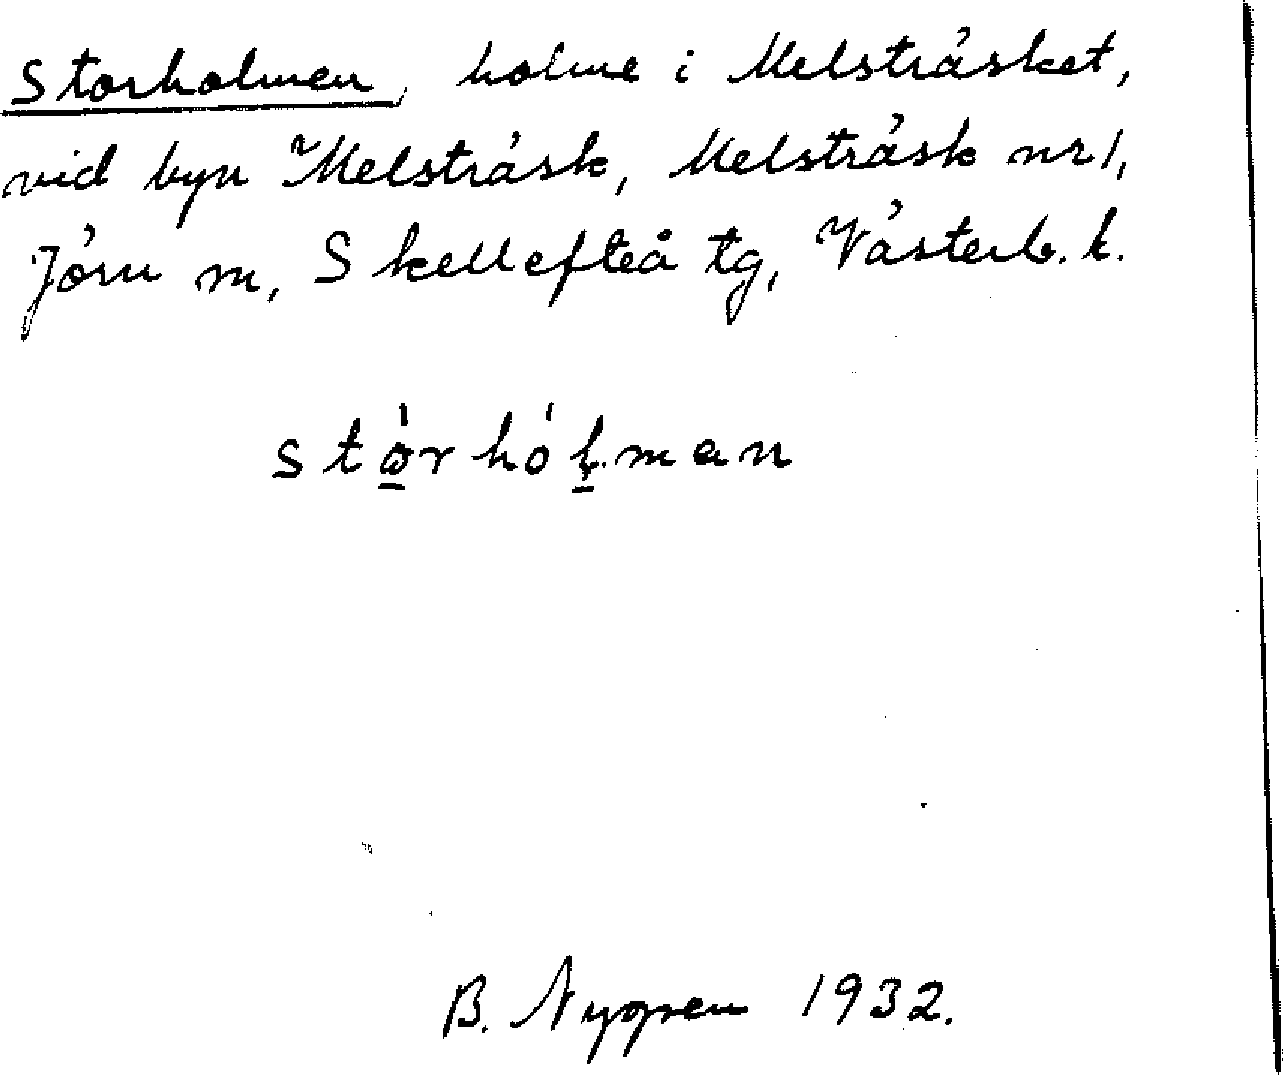 Storholmen, holme i Melsträsket,
vid byn Melsträsk, Melsträsk nr 1,
Jörn sn, Skellefteå tg, Västerb. l.
stǿrhóḷman
B. Nyppen 1932.